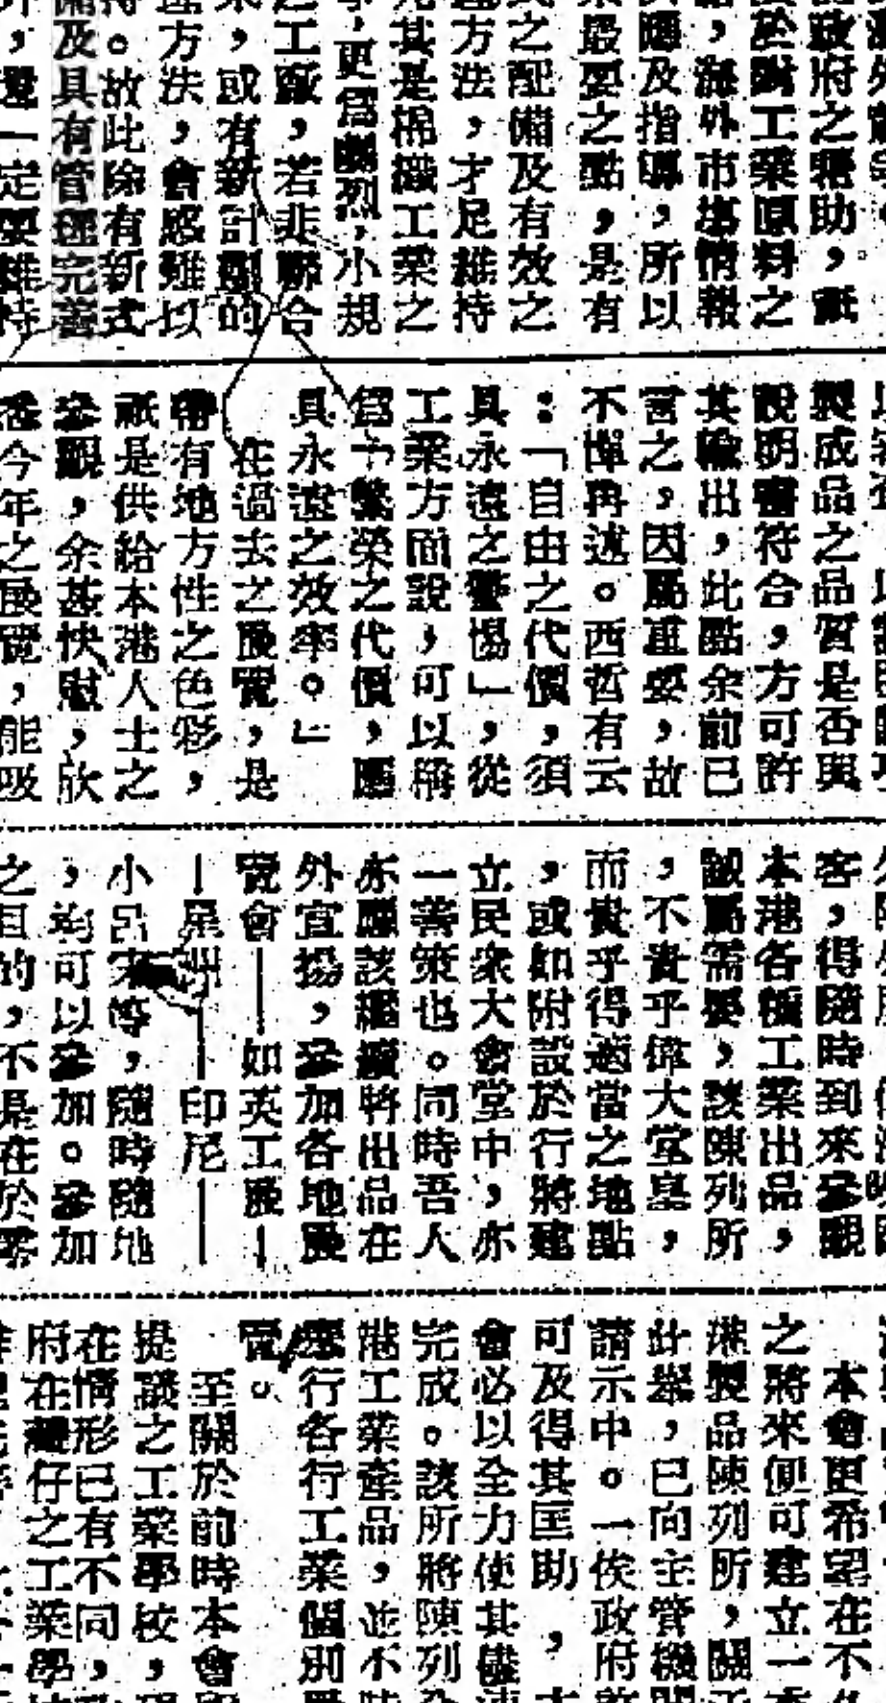 政府之贊助，祇
於對工業原料之
，海外市塲情報
及指導，所以
最要之點，是有
之配備及有效之
方法，才足維持
其是棉織工業之
，更爲劇烈，小規
之工廠，若非聯合
，或有新計劃的
方法，會感難以
。故此除有新式
備及具有管理完善
，還一定要維持
製成品之品質是否與
說明書符合，方可許
其輸出，此點余前已
言之，因屬重要，故
不憚再述。西哲有云
：「自由之代價，須
具永遠之警惕」，從
工業方面說，可以稱
爲「繁榮之代價，應
具永遠之效率。」
在過去之展覽，是
帶有地方性之色彩，
祇是供給本港人士之
參觀，余甚快慰，欣
悉今年之展覽，能吸
客，得隨時到來參觀
本港各種工業出品，
誠屬需要，該陳列所
，不貴乎偉大堂皇，
而貴乎得適當之地點
，或如附設於行將建
立民衆大會堂中，亦
一善策也。同時吾人
亦應該繼續將出品在
外宣揚，參加各地展
覽會——如英工展—
—星州——印尼——
小呂宋等，隨時隨地
，均可以參加。參加
之目的，不是在於
本會更希望在不
之將來便可建立一
製品陳列所，關
此舉，已向主管機
請示中。一俟政府
可及得其匡助，
會必以全力使其
完成。該所將陳列
港工業產品，並不
舉行各行工業個別
覽。
至關於前時本會
提議之工業學校，
在情形已有不同，
府在灣仔之工業學